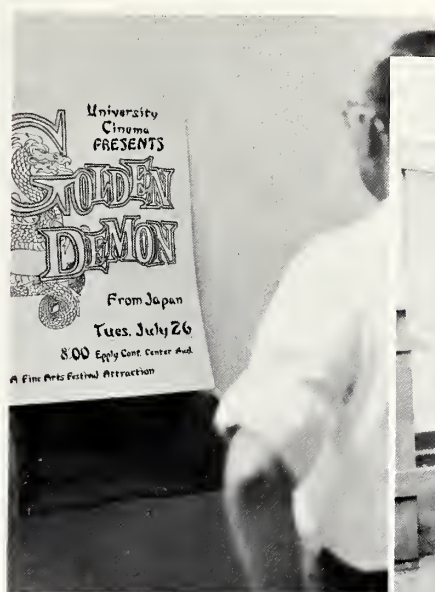 University
Cinema
PRESENTS
GOLDEN
DEMON
From Japan
Tues. July 26
8:00 Epply Conf. Center Aud.
A Fine Arts Festival Attraction